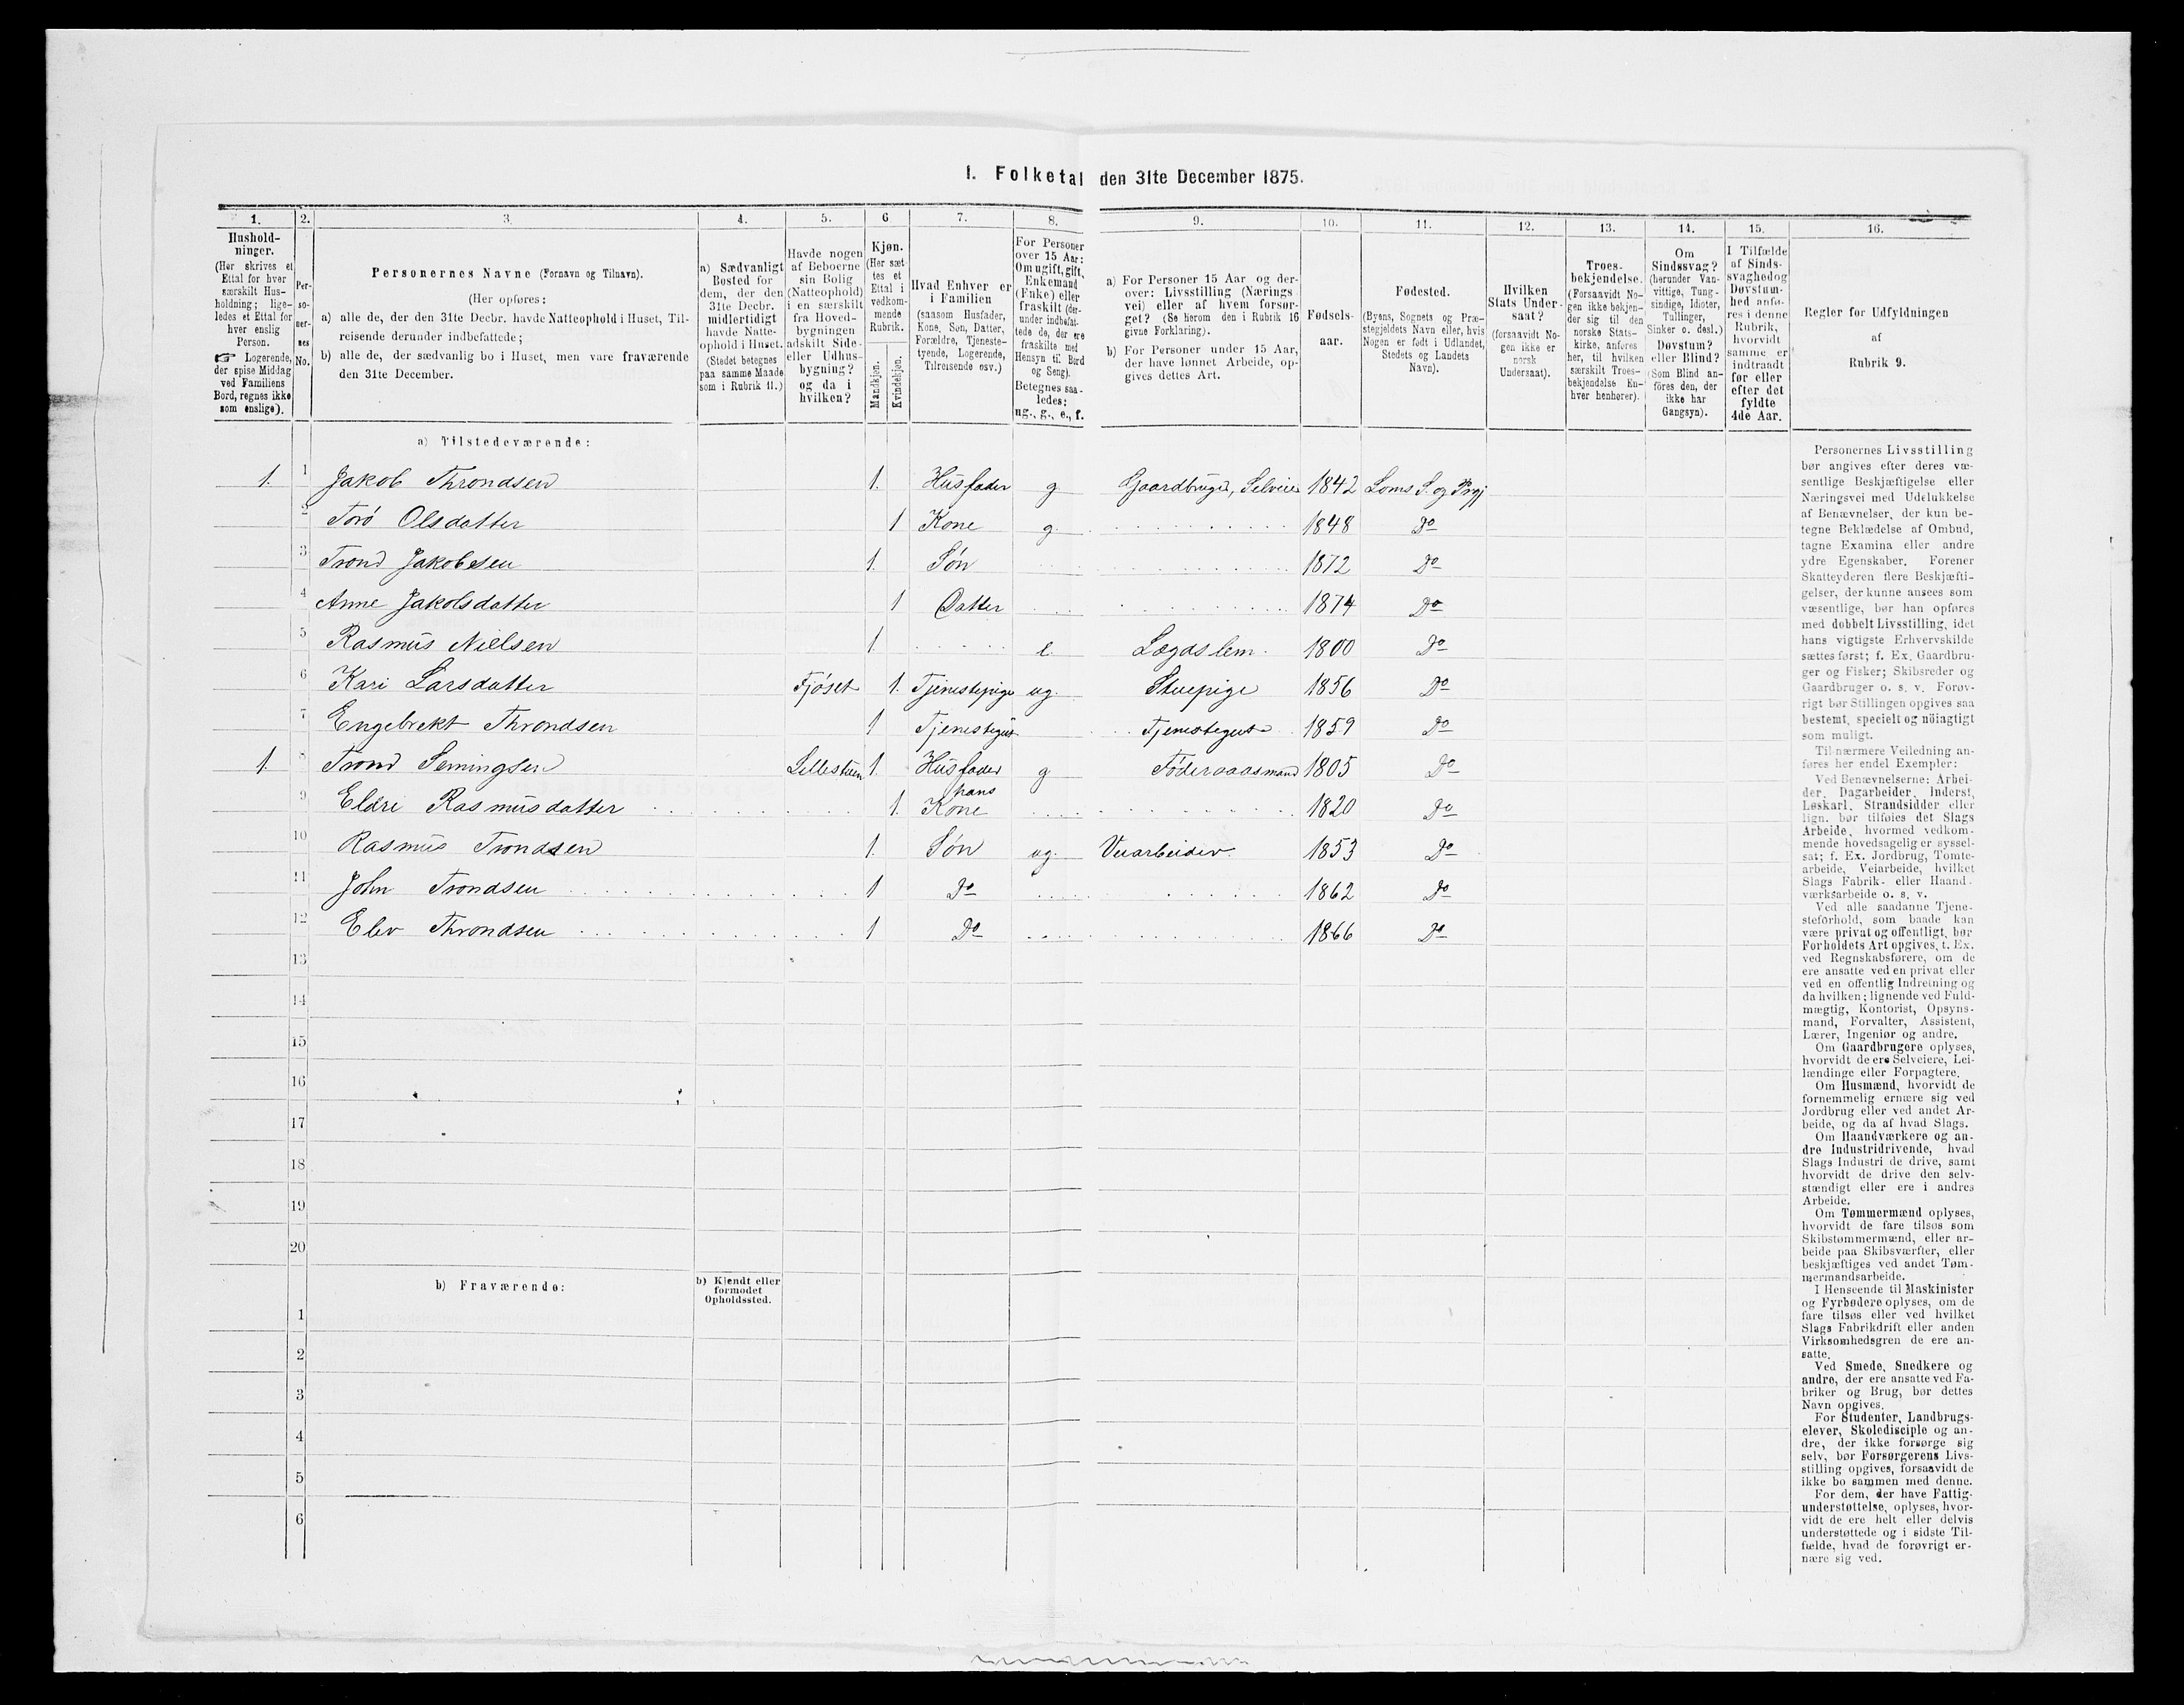 I. Folketal den 31te December 1875.
1. 2. 3. 4. 5. 6 7. 8. 9. 10. 11. 12. 13. 14. 15. 16.
Hushold-
ninger.
(Her skrives et
Ettal for hver
særskilt Hus-
holdning; lige-
ledes et Ettal for
hver enslig
Person.
☞ Logerende,
der spise Middag
ved Familiens
Bord, regnes ikke
som enslige).
Per-
so-
ner-
nes
No.
Personernes Navne (Fornavn og Tilnavn).
(Her opføres:
a) alle de, der den 31te Decbr. havde Natteophold i Huset, Til-
reisende derunder indbefattede;
b) alle de, der sædvanlig bo i Huset, men vare fraværende
den 31te December.
a) Sædvanligt
Bosted for
dem, der den
31te Decbr.
midlertidigt
havde Natte-
ophold i Huset.
(Stedet betegnes
paa samme Maade
som i Rubrik 11.)
Havde nogen
af Beboerne
sin Bolig
(Natteophold)
i en særskilt
fra Hoved-
bygningen
adskilt Side-
eller Udhus-
bygning?
og da i
hvilken?
Kjøn.
(Her sæt-
tes et
Ettal i
vedkom-
mende
Rubrik.
Mandkjøn.
Kvindekjøn.
Hvad Enhver er
i Familien
(saasom Husfader,
Kone, Søn, Datter,
Forældre, Tjeneste-
tyende, Logerende,
Tilreisende osv.)
For Personer
over 15 Aar:
Om ugift, gift,
Enkemand
(Enke) eller
fraskilt (der-
under indbefat-
tede de, der ere
fraskilte med
Hensyn til Bord
og Seng).
Betegnes saa-
ledes:
ug., g., e., f.
a) For Personer 15 Aar og der-
over: Livsstilling (Nærings
vei) eller af hvem forsør-
get? (Se herom den i Rubrik 16
givne Forklaring).
b) For Personer under 15 Aar,
der have lønnet Arbeide, op-
gives dettes Art.
Fødsels-
aar.
Fødested.
(Byens, Sognets og Præ-
stegjeldets Navn eller, hvis
Nogen er født i Udlandet,
Stedets og Landets
Navn).
Hvilken
Stats Under-
saat?
(forsaavidt No-
gen ikke er
norsk
Undersaat).
Troes-
bekjendelse.
(Forsaavidt No-
gen ikke bekjen-
der sig til den
norske Stats-
kirke, anføres
her, til hvilken
særskilt Troes-
bekjendelse En-
hver henhører).
Om
Sindssvag?
(herunder Van-
vittige, Tung-
sindige, Idioter,
Tullinger,
Sinker o. desl.)
Døvstum?
eller Blind?
(Som Blind an-
föres den, der
ikke har
Gangsyn).
I Tilfælde
af Sinds-
svaghed og
Døvstum-
hed anfø-
res i denne
Rubrik,
hvorvidt
samme er
indtraadt
før eller
efter det
fyldte
4de Aar.
Regler for Udfyldningen
af
Rubrik 9.
a) Tilstedeværende:
1. 1 Jakob Throndsen 1. Husfader g Gaardbruger, Selveier 1842 Loms S. og Prgj
2 Torø Olsdatter 1 Kone g. 1848 Do
3 Trond Jakobsen 1. Søn 1872 Do
4 Anne Jakobsdatter 1 Datter 1874 Do
5 Rasmus Nielsen 1 e. Lægdslem. 1800 Do
6 Kari Larsdatter Fjøset 1. Tjenestepige ug. Stuepige 1856 Do
7 Engebrekt Throndsen 1 Tjenestegut Tjenestegut 1859 Do
1. 8 Trond Semingsen Lillestuen 1. Husfader g Föderaadsmand 1805 Do
9 Eldri Rasmusdatter 1. hans Kone 1820 Do
10 Rasmus Trondsen 1. Søn ug. Veiarbeider. 1853 Do
11 John Trondsen 1 Do 1862 Do
12 Elev Throndsen 1 Do 1866 Do
13
14
15
16
17
18
19
20
b) Fraværende:
b) Kjendt eller
formodet
Opholdssted.
1
2
3
4
5
6
Personernes Livsstilling
bør angives efter deres væ-
sentlige Beskjæftigelse eller
Næringsvei med Udelukkelse
af Benævnelser, der kun be-
tegne Beklædelse af Ombud,
tagne Examina eller andre
ydre Egenskaber. Forener
Skatteyderen flere Beskjæfti-
gelser, der kunne ansees som
væsentlige, bør han opføres
med dobbelt Livsstilling, idet
hans vigtigste Erhvervskilde
sættes først; f. Ex. Gaardbru-
ger og Fisker; Skibsreder og
Gaardbruger o. s. v. Forøv-
rigt bør Stillingen opgives saa
bestemt, specielt og nöiagtigt
som muligt.
Til nærmere Veiledning an-
føres her endel Exempler:
Ved Benævnelserne: Arbei-
der, Dagarbeider, Inderst,
Løskarl, Strandsidder eller
lign. bør tilføies det Slags
Arbeide, hvormed vedkom-
mende hovedsagelig er syssel-
sat; f. Ex. Jordbrug, Tomte-
arbeide, Veiarbeide, hvilket
Slags Fabrik- eller Haand-
værksarbeide o. s. v.
Ved alle saadanne Tjene-
steforhold, som baade kan
være privat og offentligt, bør
Forholdets Art opgives, t. Ex.
ved Regnskabsførere, om de
ere ansatte ved en privat eller
ved en offentlig Indretning og
da hvilken; lignende ved Fuld-
mægtig, Kontorist, Opsyns-
mand, Forvalter, Assistent,
Lærer, Ingeniør og andre.
Om Gaardbrugere oplyses,
hvorvidt de ere Selveiere, Lei-
lændinge eller Forpagtere.
Om Husmænd, hvorvidt de
fornemmelig ernære sig ved
Jordbrug eller ved andet Ar-
beide, og da af hvad Slags.
Om Haandværkere og an-
dre Industridrivende, hvad
Slags Industri de drive, samt
hvorvidt de drive den selv-
stændigt eller ere i andres
Arbeide.
Om Tømmermænd oplyses,
hvorvidt de fare tilsøs som
Skibstømmermænd, eller ar-
beide paa Skibsværfter, eller
beskjæftiges ved andet Tøm-
mermandsarbeide.
I Henseende til Maskinister
og Fyrbødere oplyses, om de
fare tilsøs eller ved hvilket
Slags Fabrikdrift eller anden
Virksomhedsgren de ere an-
satte.
Ved Smede, Snedkere og
andre, der ere ansatte ved Fa-
briker og Brug, bør dettes
Navn opgives.
For Studenter, Landbrugs-
elever, Skoledisciple og an-
dre, der ikke forsørge sig
selv, bør Forsørgerens Livs-
stilling opgives, forsaavidt de
ikke bo sammen med denne.
For dem, der have Fattig-
understøttelse, oplyses, hvor-
vidt de ere helt eller delvis
understøttede og i sidste Til-
fælde, hvad de forøvrigt er-
nære sig ved.